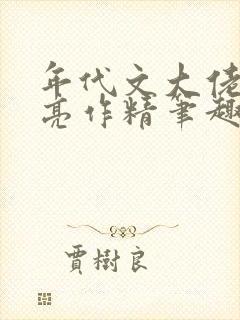 年代文大佬
亮作精筆趣
賈樹良